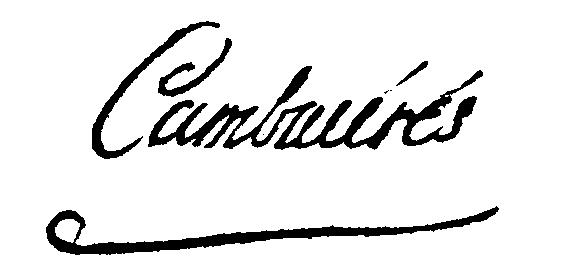 Cambacérés